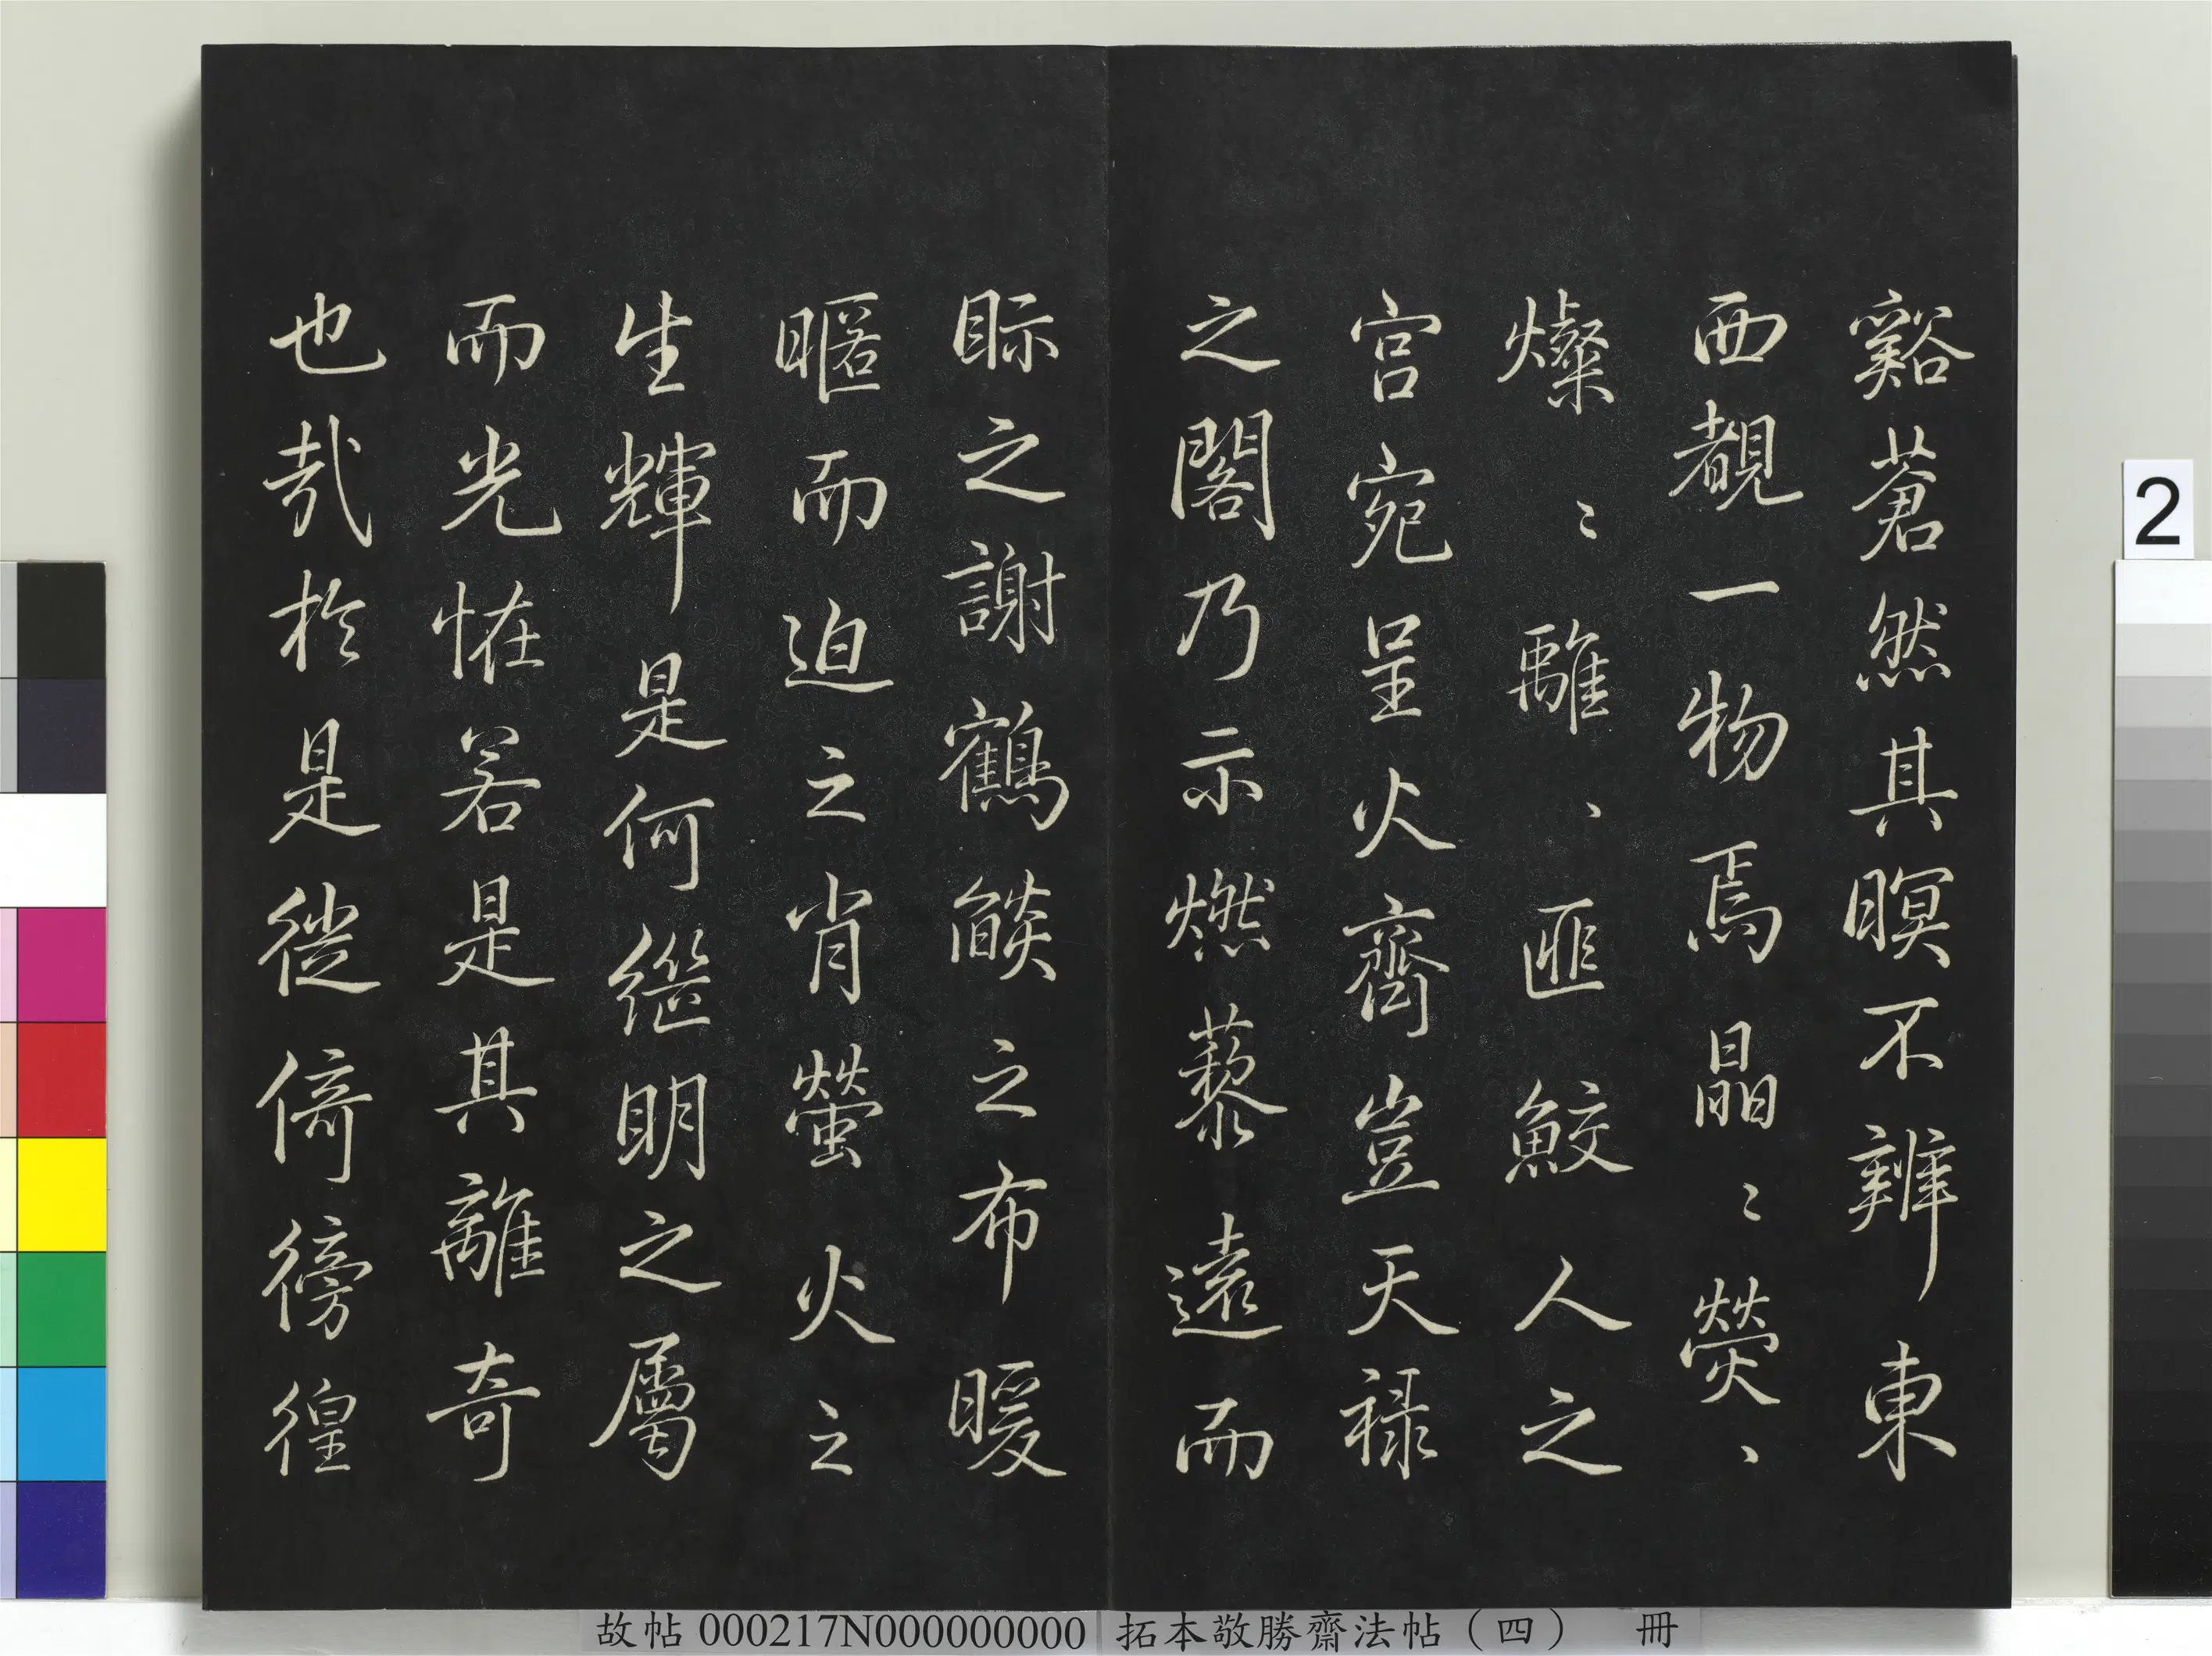 谿蒼然其暝不辨東
西覩一物焉晶〻熒〻
燦〻離〻匪鮫人之
宮宛呈火齊豈天祿
之閣乃示燃藜遠而
眎之謝鶴燄之布暖
暱而迫之肖螢火之
生輝是何継明之屬
而光恠若是其離奇
也哉於是徙倚徬徨
2
故帖 000217N000000000 拓本敬勝齋法帖（四） 冊